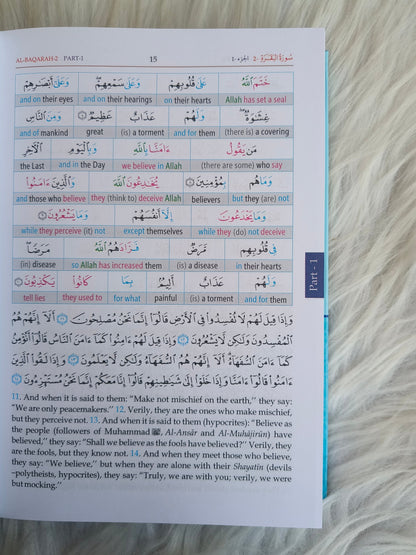 AL-BAQARAH-2 PART-1 15 الجزء-1 سُورَةُ البَقَرَة -2
خَتَمَ ٱللَّهُ عَلَىٰ قُلُوبِهِمْ وَعَلَىٰ سَمْعِهِمْ وَعَلَىٰٓ أَبْصَٰرِهِمْ
Allah has set a seal on their hearts and on their hearings and on their eyes
غِشَٰوَةٌ وَلَهُمْ عَذَابٌ عَظِيمٌ ٧ وَمِنَ ٱلنَّاسِ
(there is) a covering and for them (is) a torment great and of mankind
مَن يَقُولُ ءَامَنَّا بِٱللَّهِ وَبِٱلْيَوْمِ ٱلْءَاخِرِ
(there are some) who say we believe in Allah and in the Day the Last
وَمَا هُم بِمُؤْمِنِينَ ٨ يُخَٰدِعُونَ ٱللَّهَ وَٱلَّذِينَ ءَامَنُوا۟
but they (are) not believers they (think to) deceive Allah and those who believe
وَمَا يَخْدَعُونَ إِلَّآ أَنفُسَهُمْ وَمَا يَشْعُرُونَ ٩
while they (do) not deceive except themselves while they perceive (it) not
فِى قُلُوبِهِم مَّرَضٌ فَزَادَهُمُ ٱللَّهُ مَرَضًا
in their hearts (is) a disease so Allah has increased them (in) disease
وَلَهُمْ عَذَابٌ أَلِيمٌۢ بِمَا كَانُوا۟ يَكْذِبُونَ ١٠
and for them (is) a torment painful for what they used to tell lies
وَإِذَا قِيلَ لَهُمْ لَا تُفْسِدُوا۟ فِى ٱلْأَرْضِ قَالُوٓا۟ إِنَّمَا نَحْنُ مُصْلِحُونَ ١١ أَلَآ إِنَّهُمْ هُمُ
ٱلْمُفْسِدُونَ وَلَٰكِن لَّا يَشْعُرُونَ ١٢ وَإِذَا قِيلَ لَهُمْ ءَامِنُوا۟ كَمَآ ءَامَنَ ٱلنَّاسُ قَالُوٓا۟ أَنُؤْمِنُ
كَمَآ ءَامَنَ ٱلسُّفَهَآءُ أَلَآ إِنَّهُمْ هُمُ ٱلسُّفَهَآءُ وَلَٰكِن لَّا يَعْلَمُونَ ١٣ وَإِذَا لَقُوا۟ ٱلَّذِينَ
ءَامَنُوا۟ قَالُوٓا۟ ءَامَنَّا وَإِذَا خَلَوْا۟ إِلَىٰ شَيَٰطِينِهِمْ قَالُوٓا۟ إِنَّا مَعَكُمْ إِنَّمَا نَحْنُ مُسْتَهْزِءُونَ ١٤
11. And when it is said to them: "Make not mischief on the earth," they say:
"We are only peacemakers." 12. Verily, they are the ones who make mischief,
but they perceive not. 13. And when it is said to them (hypocrites): "Believe as
the people (followers of Muhammad ﷺ, Al-Ansâr and Al-Muhâjirûn) have
believed," they say: "Shall we believe as the fools have believed?" Verily, they
are the fools, but they know not. 14. And when they meet those who believe,
they say: "We believe," but when they are alone with their Shayatîn (devils
–polytheists, hypocrites), they say: "Truly, we are with you; verily, we were
but mocking."
Part - 1